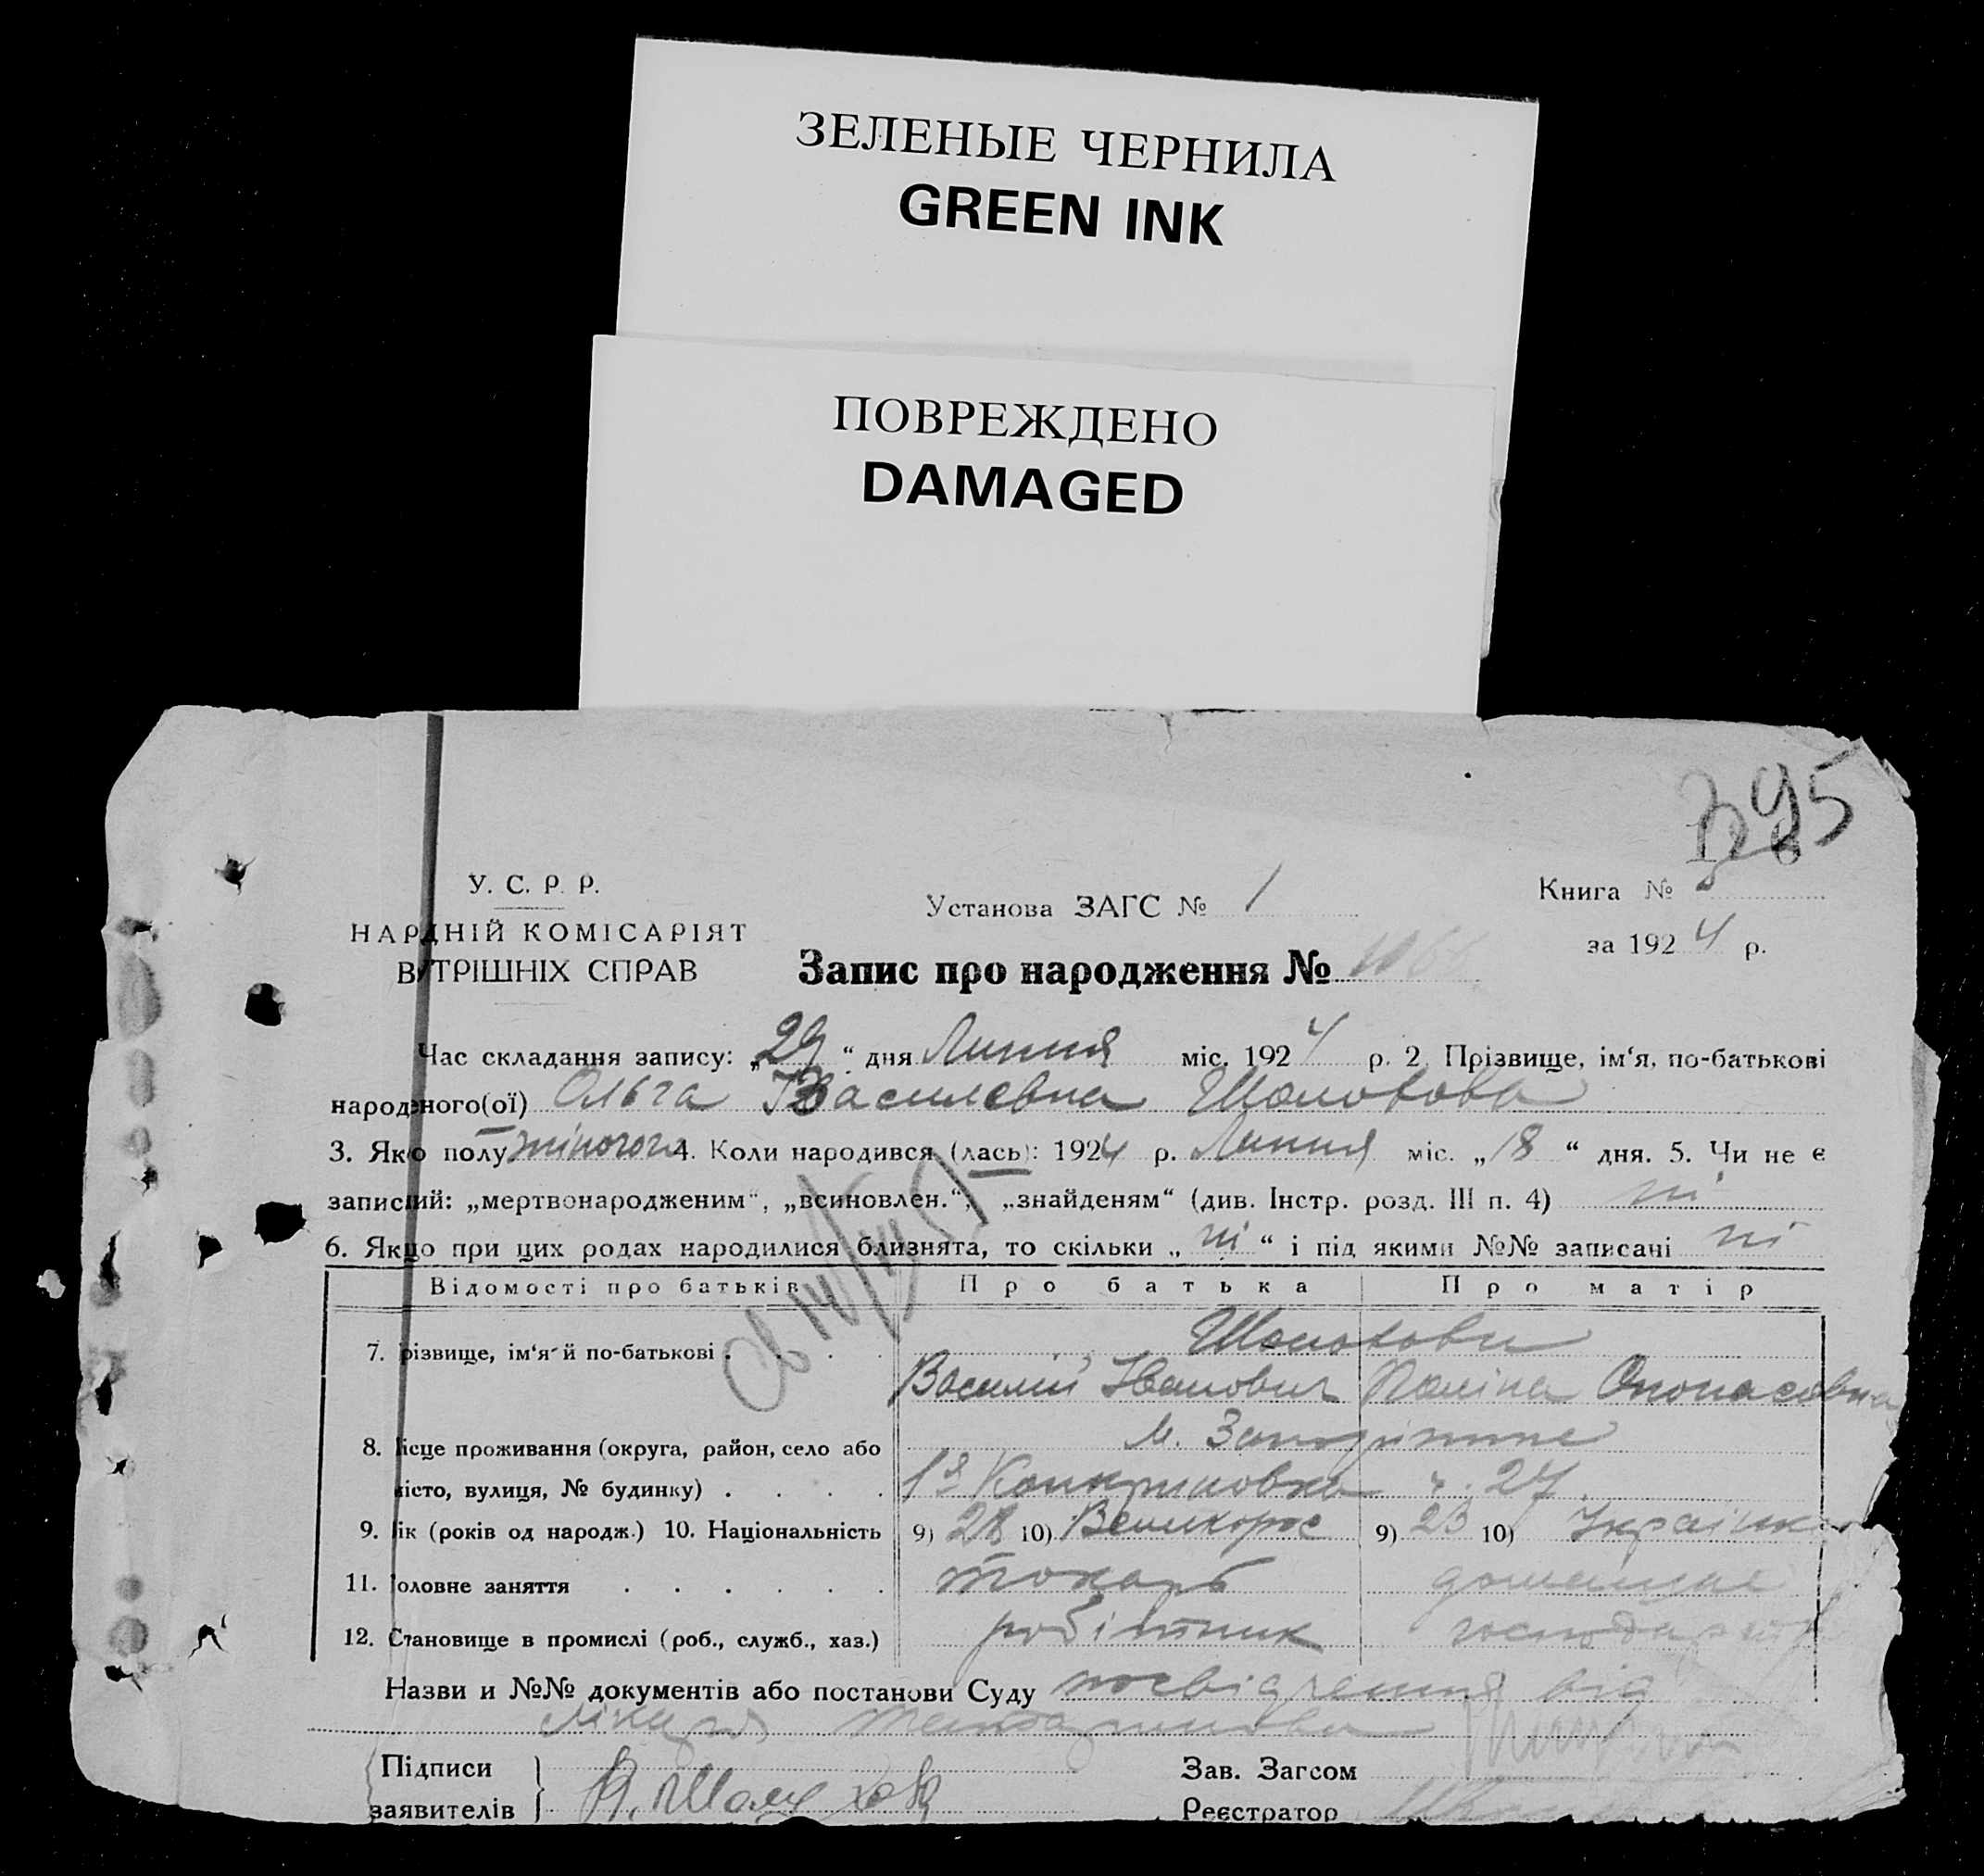 ЗЕЛЕНЫЕ ЧЕРНИЛА
GREEN INK
ПОВРЕЖДЕНО
DAMAGED
395
У. С. Р. Р.
НАРДНІЙ КОМІСАРІЯТ
ВТРІШНІХ СПРАВ
Установа ЗАГС № 1
Книга №
за 1924 р.
Запис про народження №
Час складання запису: „29“ дня Липня міс. 1924 р. 2. Прізвище, ім‘я, по-батькові
народеного(ої) Ольга Василевна Шолохова
3. Яко полу жіночого 4. Коли народився (лась): 1924 р. Липня міс. „18“ дня. 5. Чи не є
записий: „мертвонародженим“, „всиновлен.“, „знайденям“ (див. Інстр. розд. III п. 4) ні
6. Якщо при цих родах народилися близнята, то скільки „ні“ і під якими №№ записані ні
Відомості про батьків Про батька Про матір
7. різвище, ім‘я й по-батькові Шолохови
Василий Іванович Поліна Опонасовна
8. ісце проживання (округа, район, село або м.
істо, вулиця, № будинку) 27
9. ік (років од народж.) 10. Національність 9) 28 10) Великорос 9) 23 10) Українка
11. оловне заняття токарь домашнє
12. Становище в промислі (роб., служб., хаз.) робітник
Назви и №№ документів або постанови Суду посвідчення від
лікаря
Підписи
заявителів
В. Шолохов
Зав. Загсом
Реєстратор